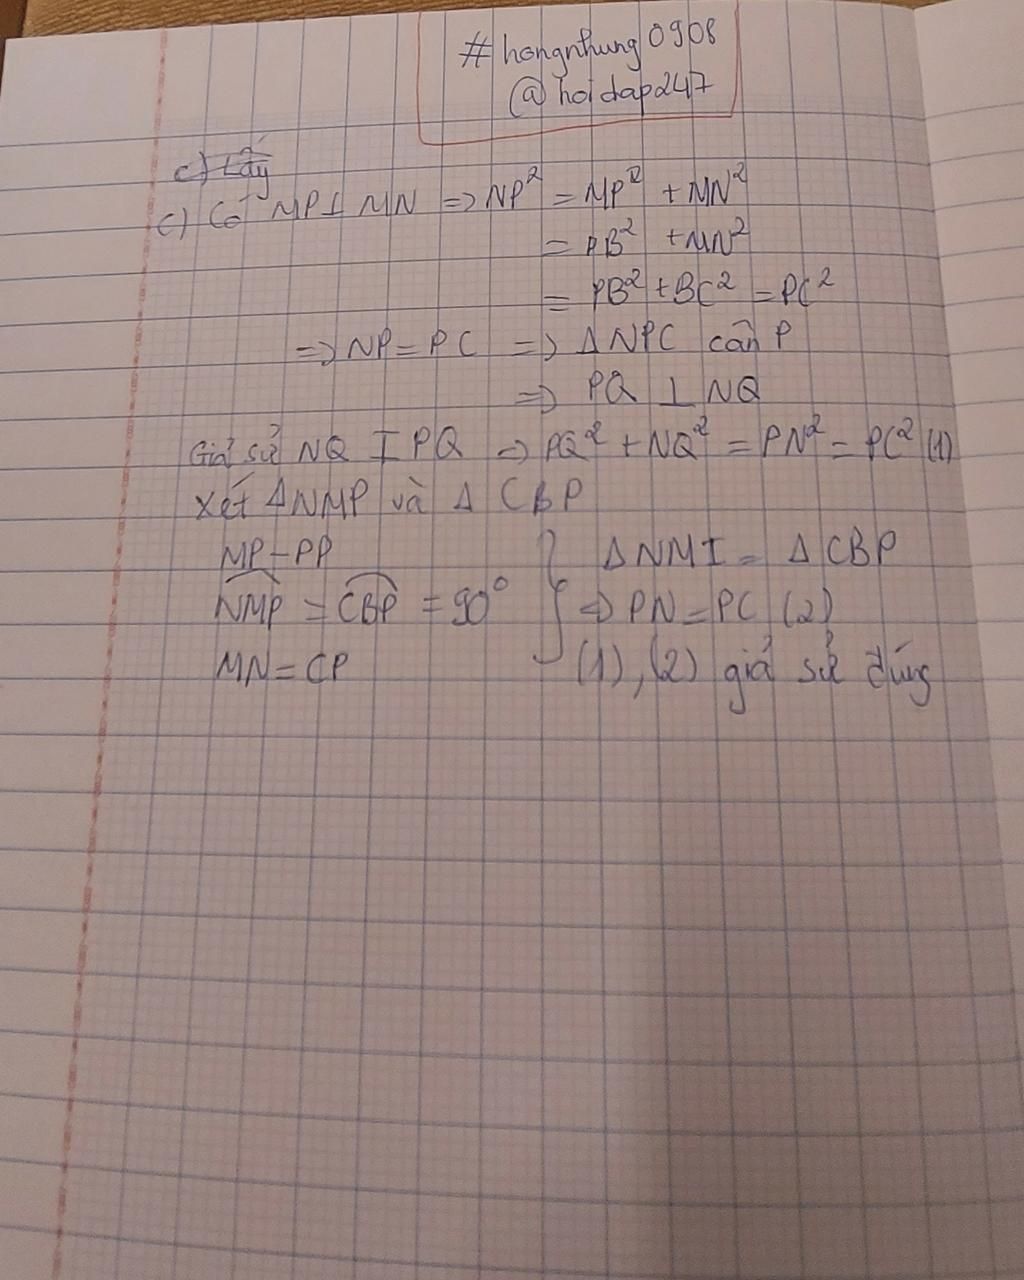 # hongnhung0908
@hoidap247
c) Lấy
c) Có MP ⊥ MN => NP² = MP² + MN²
= PB² + MN²
= PB² + BC² = PC²
=> NP = PC => Δ NPC cân P
=> PQ ⊥ NQ
Giả sử NQ ⊥ PQ => PQ² + NQ² = PN² = PC² (1)
Xét Δ NMP và Δ CBP
MP = PP } Δ NMI = Δ CBP
NMP = CBP = 90° } => PN = PC (2)
MN = CP } (1), (2) giả sử đúng